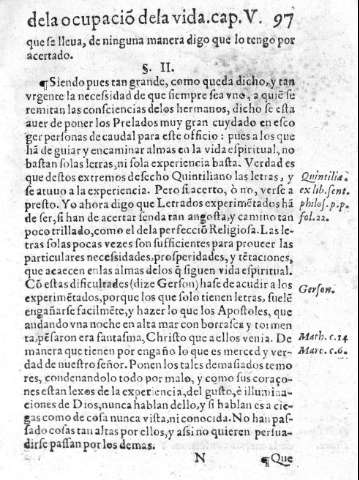 dela ocupació dela vida.cap.V. 97
que se lleua, de ninguna manera digo que lo tengo por
acertado.
§. II.
¶Siendo pues tan grande, como queda dicho, y tan
vrgente la necessidad de que siempre sea vno, a quiẽ se
remitan las consciencias delos hermanos, dicho se esta
auer de poner los Prelados muy gran cuydado en esco
ger personas de caudal para este officio: pues a los que
hã de guiar y encaminar almas en la vida espiritual, no
bastan solas letras, ni sola experiencia basta. Verdad es
que destos extremos desecho Quintiliano las letras, y
se atuuo a la experiencia. Pero si acerto, ò no, verse a
presto. Yo ahora digo que Letrados experimẽtados hã
de ser, si han de acertar senda tan angosta, y camino tan
poco trillado, como el dela perfecció Religiosa. Las le-
tras solas pocas vezes son sufficientes para proueer las
particulares necessidades, prosperidades, y tẽtaciones,
que acaecen en las almas delos q̃ siguen vida espiritual.
Cõ estas difficultades (dize Gerson) hase de acudir a los
experimẽtados, porque los que solo tienen letras, suelẽ
engañarse facilmẽte, y hazer lo que los Apostoles, que
andando vna noche en alta mar con borrasca y tormen
ta, pẽsaron era fantasma, Christo que a ellos venia. De
manera que tienen por engaño lo que es merced y ver-
dad de nuestro señor. Ponen los tales demasiados temo
res, condenandolo todo por malo, y como sus coraço-
nes estan lexos de la experiencia, del gusto, è illumina-
ciones de Dios, nunca hablan dello, y si hablan es a cie-
gas como de cosa nunca vista, ni conocida. No han pas-
sado cosas tan altas por ellos, y assi no quieren persua-
dirse passan por los demas.
Quintilia.
ex lib. sent.
philos. p. p.
fol. 22.
Gerson.
Math. c. 14
Marc. c. 6.
N ¶Que